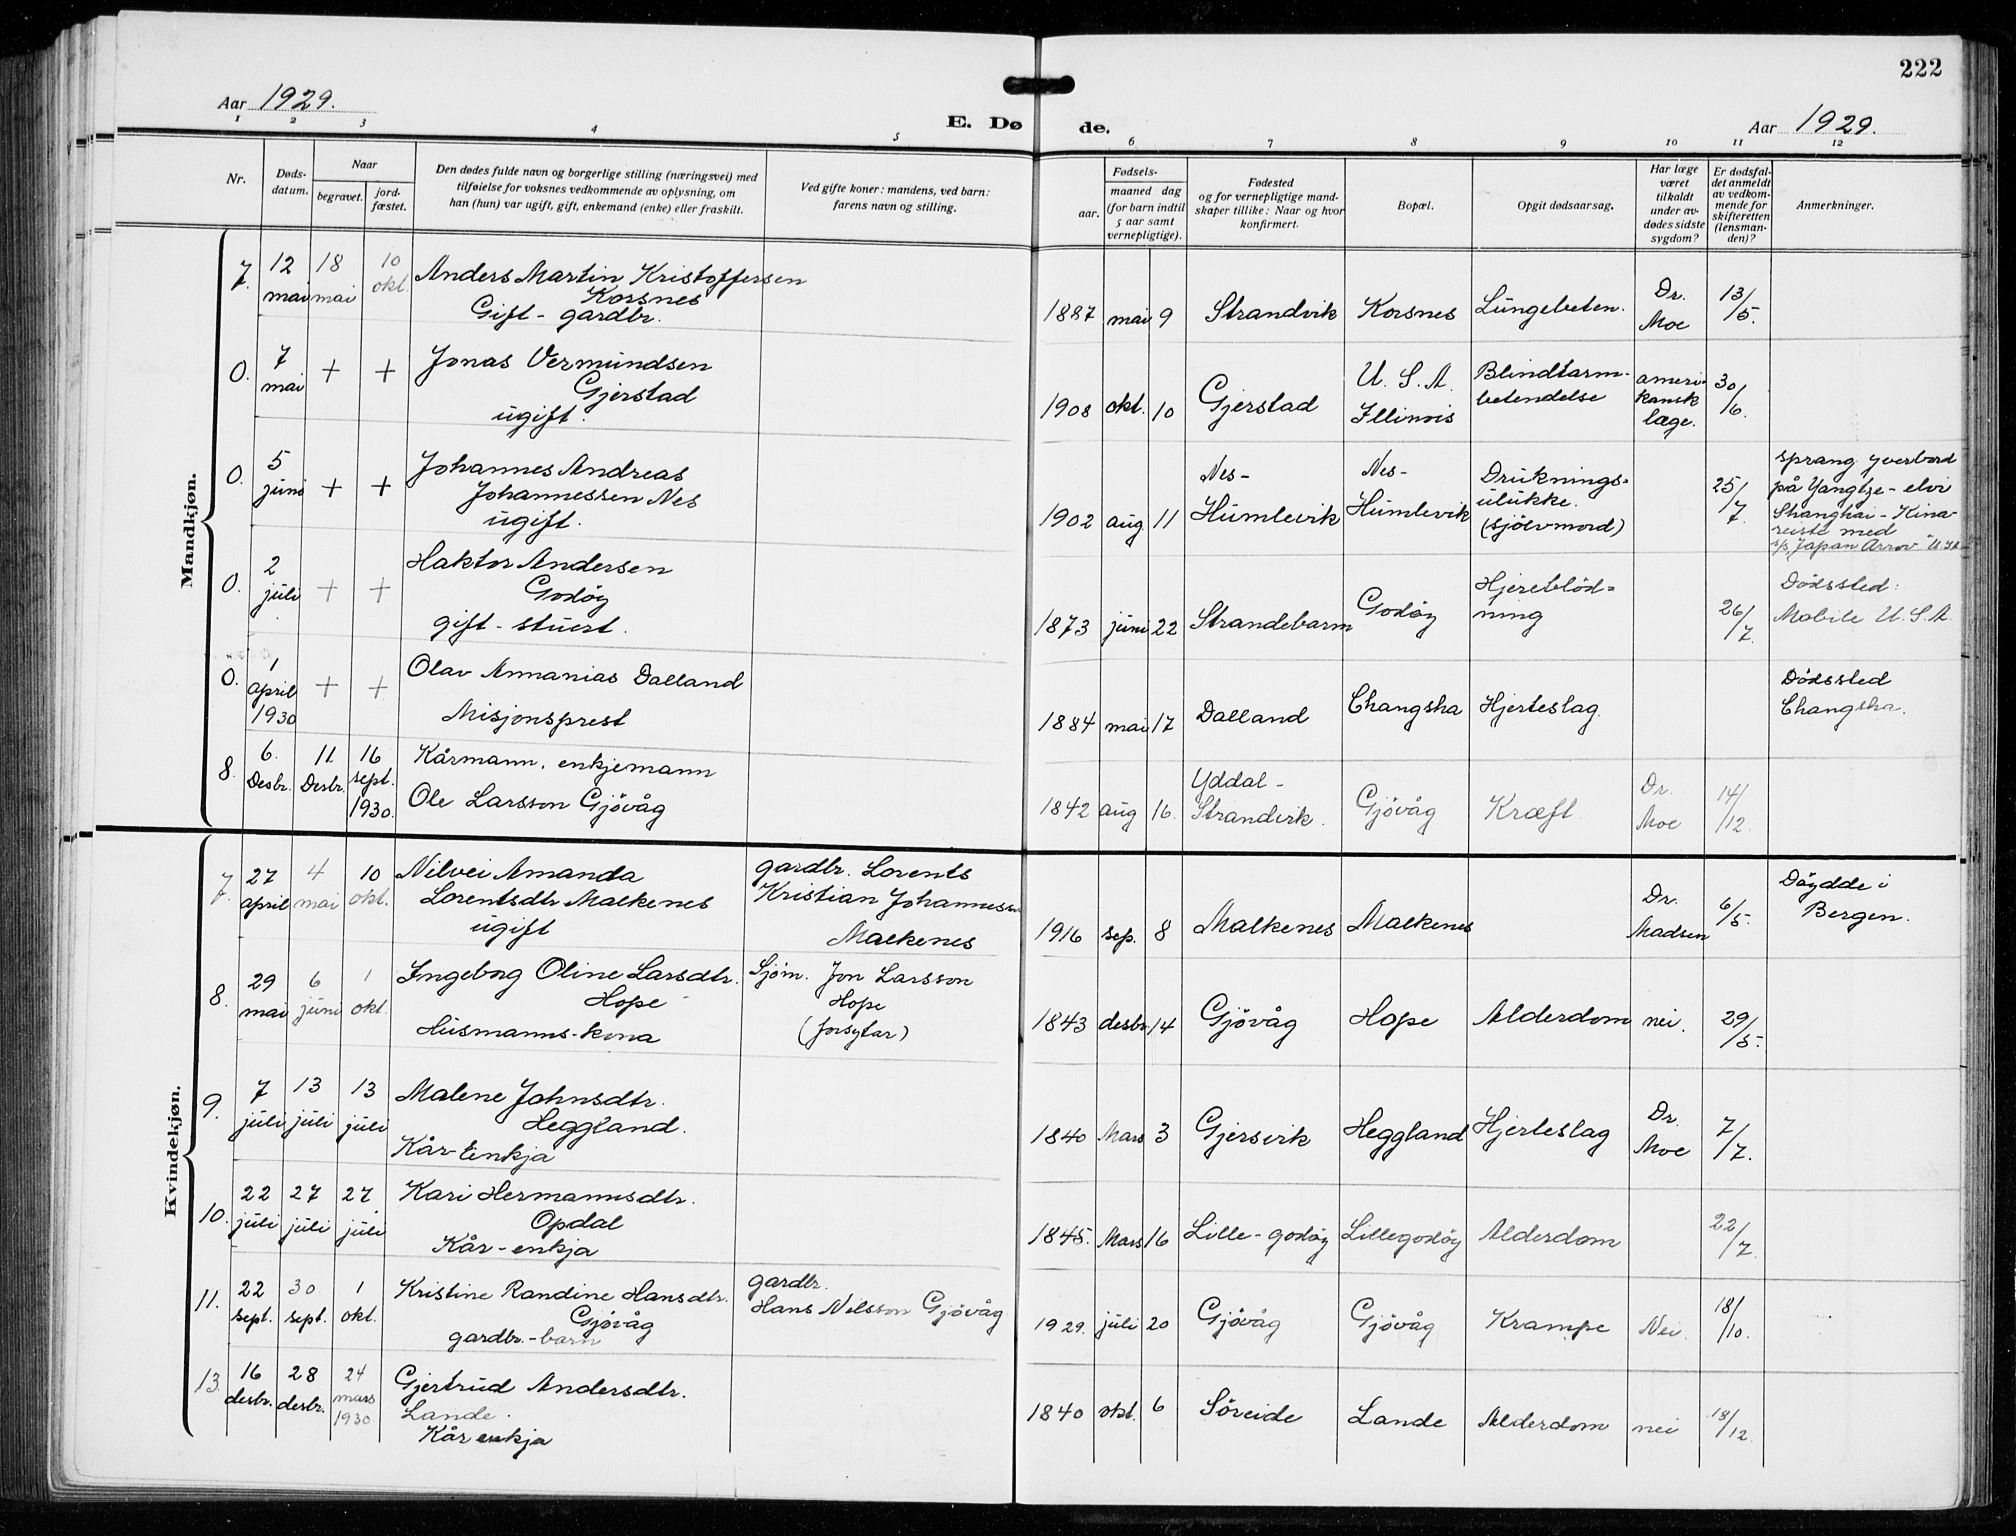 222
Aar 1929.
E. Døde.
Aar 1929.
1 2 3 4 5 6 7 8 9 10 11 12
Nr.
Døds-
datum.
Naar
begravet.
jord-
fæstet.
Den dødes fulde navn og borgerlige stilling (næringsvei) med
tilføielse for voksnes vedkommende av oplysning, om
han (hun) var ugift, gift, enkemand (enke) eller fraskilt.
Ved gifte koner: mandens, ved barn:
farens navn og stilling.
Fødsels-
aar.
maaned dag
(for barn indtil
5 aar samt
vernepligtige).
Fødested
og for vernepligtige mand-
skaper tillike: Naar og hvor
konfirmert.
Bopæl.
Opgit dødsaarsag.
Har læge
været
tilkaldt
under av-
dødes sidste
sygdom?
Er dødsfal-
det anmeldt
av vedkom-
mende for
skifteretten
(lensman-
den)?
Anmerkninger.
Mandkjøn.
7. 12 mai 18 mai 10 okt. Anders Martin Kristoffersen
Korsnes
Gift - gardbr.
1887 mai 9 Strandvik Korsnes Lungebeten. Dr. Moe 13/5.
0. 7 mai + + Jonas Vermundsen
Gjerstad
ugift.
1908 okt. 10 Gjerstad U. S. A. Illinois Blindtarm-
betendelse ameri-
kansk
læge. 30/6.
0. 5 juni + + Johannes Andreas
Johannessen Nes
ugift.
1902 aug 11 Nes-
Humlevik Nes-
Humlevik Druknings-
ulukke.
(sjölvmord) 25/7. sprang yverbord
på Yangtze-elvi
Shanghai - Kina-
reiste med
s/s "Japan Arrow" U.S.A.
0. 2 juli + + Haktor Andersen
Godöy
gift - stuert.
1873 juni 22 Strandebarm Godöy Hjerneblöd-
ning 26/7. Dödssted:
Mobile U.S.A.
0. 1 april 1930 + + Olav Annanias Dalland
Misjonsprest
1884 mai 17 Dalland Changsha Hjerteslag. Dödssted
Changsha.
8. 6. Desbr. 11 Desbr. 16 sept. 1930. Kårmann, enkjemann
Ole Larsson Gjövåg
1842 aug 16. Yddal -
Strandvik. Gjövåg Kræft. Dr. Moe 14/12.
Kvindekjøn.
7. 27 april 4 mai 10 okt. Nilvei Amanda
Lorentsdtr Malkenes
ugift
gardbr. Lorents
Kristian Johannessen
Malkenes
1916 sep. 8 Malkenes Malkenes Dr. Madsen 6/5. Döydde i
Bergen.
8. 29 mai 6 juni 1 okt. Ingeborg Oline Larsdtr.
Hope
Husmanns-kona
Sjöm. Jon Larsson
Hope
(forsytar)
1843 desbr. 14 Gjövåg Hope Alderdom nei. 29/5.
9. 7 juli 13 juli 13 juli Malene Johnsdtr.
Heggland.
Kår-Enkja
1840 Mars 3 Gjersvik Heggland Hjerteslag Dr. Moe 7/7.
10. 22 juli 27 juli 27 juli Kari Hermannsdtr.
Opdal
Kår-enkja
1845. Mars 16 Lille-godöy Lillegodöy Alderdom 22/7.
11. 22 sept. 30 sept. 1 okt. Kristine Randine Hansdtr.
Gjövåg
gardbr.-barn
gardbr.
Hans Nilsson Gjövåg
1929. juli 20 Gjövåg Gjövåg Krampe Nei. 18/10.
13. 16 desbr. 28 desbr. 24 mars 1930 Gjertrud Andersdtr.
Lande.
Kår enkja
1840 okt. 6 Söreide Lande Alderdom nei 18/12.